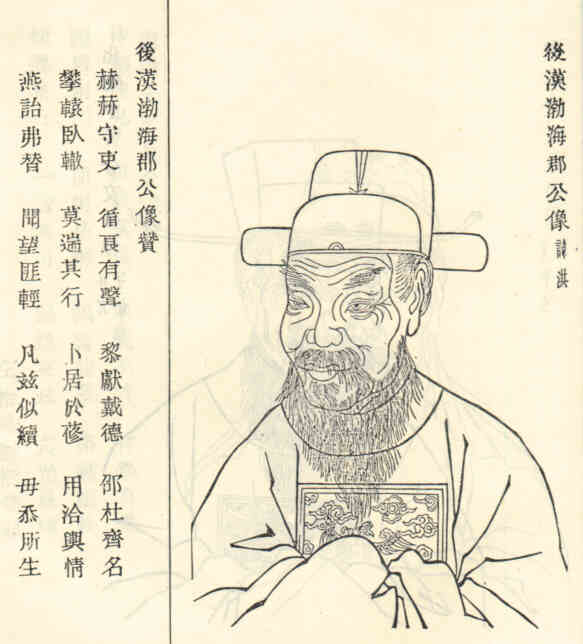 後漢渤海郡公像 諱洪
後漢渤海郡公像贊
赫赫守吏 循良有聲 黎獻戴德 邵杜齊名
攀轅臥轍 莫遄其行 卜居於蓚 用洽輿情
燕詒弗替 聞望匪輕 凡茲似續 毋忝所生